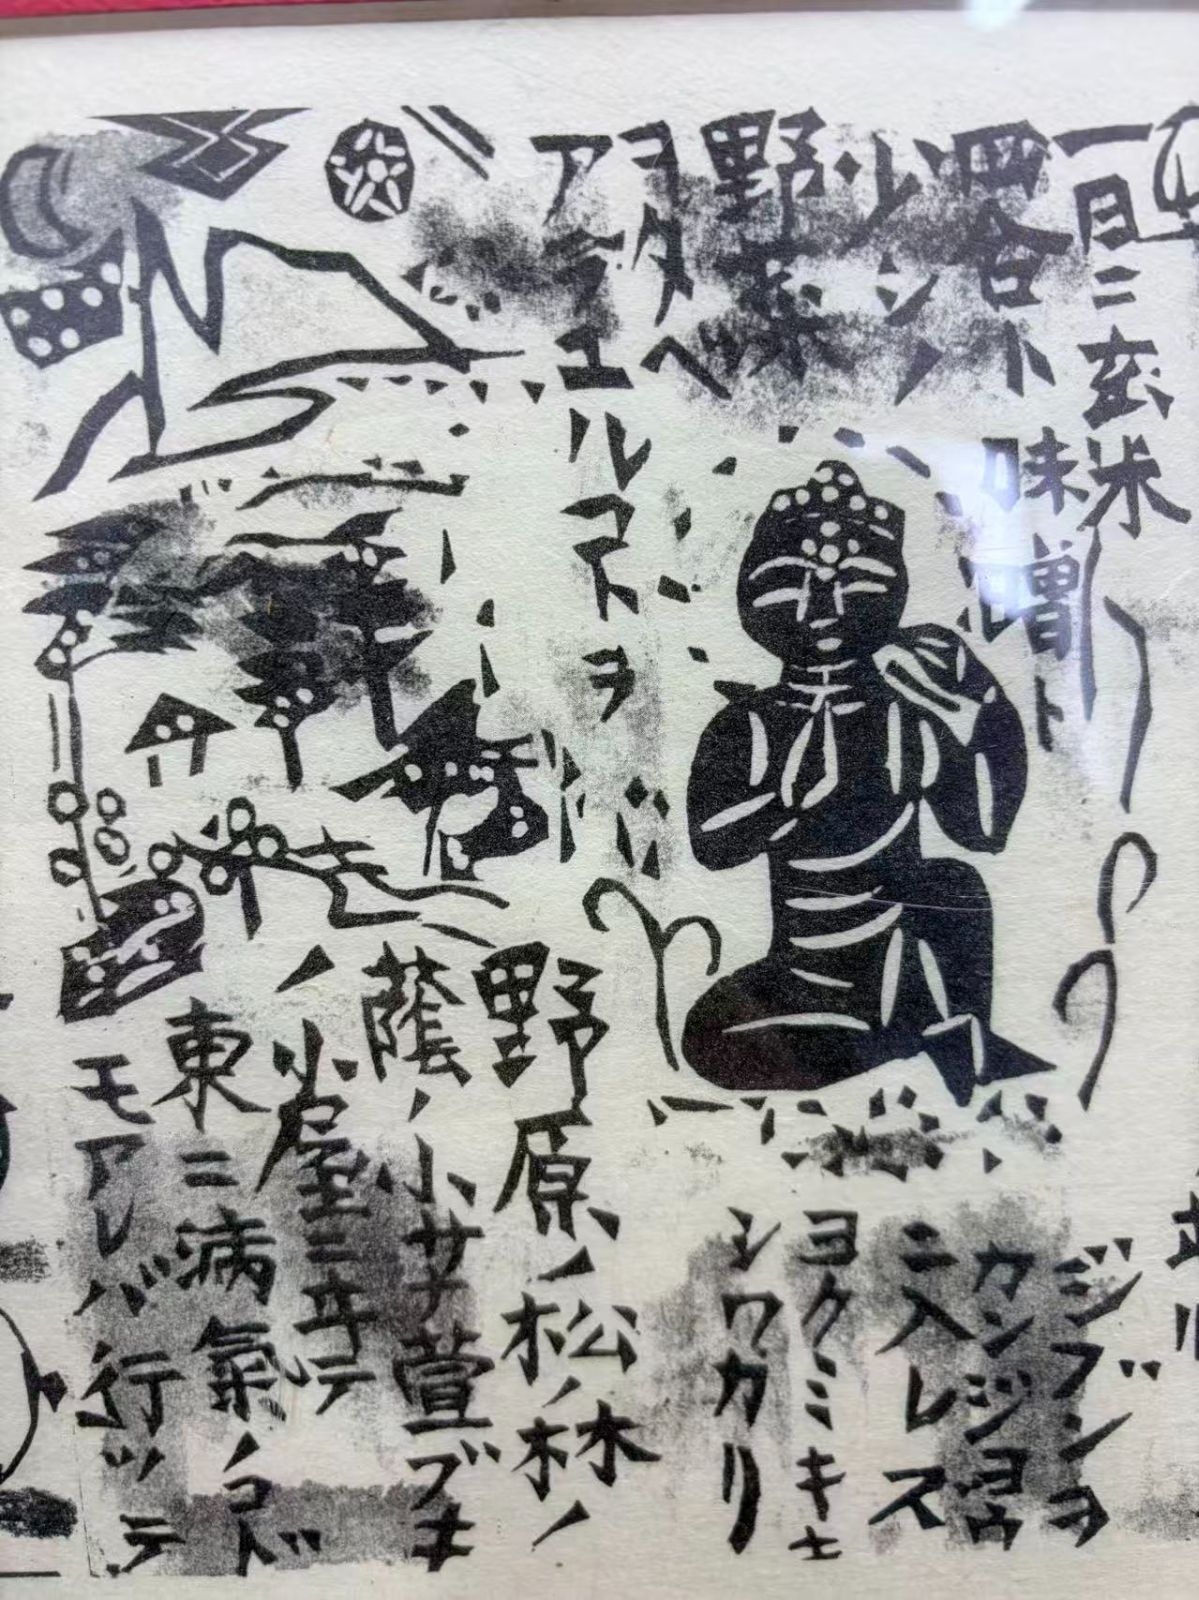 一日ニ玄米
四合ト味噌ト
少シノ
野菜
ヲタベ
アラユルコトヲ
ジブンヲ
カンジョウ
ニ入レス
ヨクミキキ
シワカリ
野原ノ松ノ林ノ
蔭ノ小サナ萱ブキ
ノ小屋ニヰテ
東ニ病氣ノコド
モアレバ行ッテ